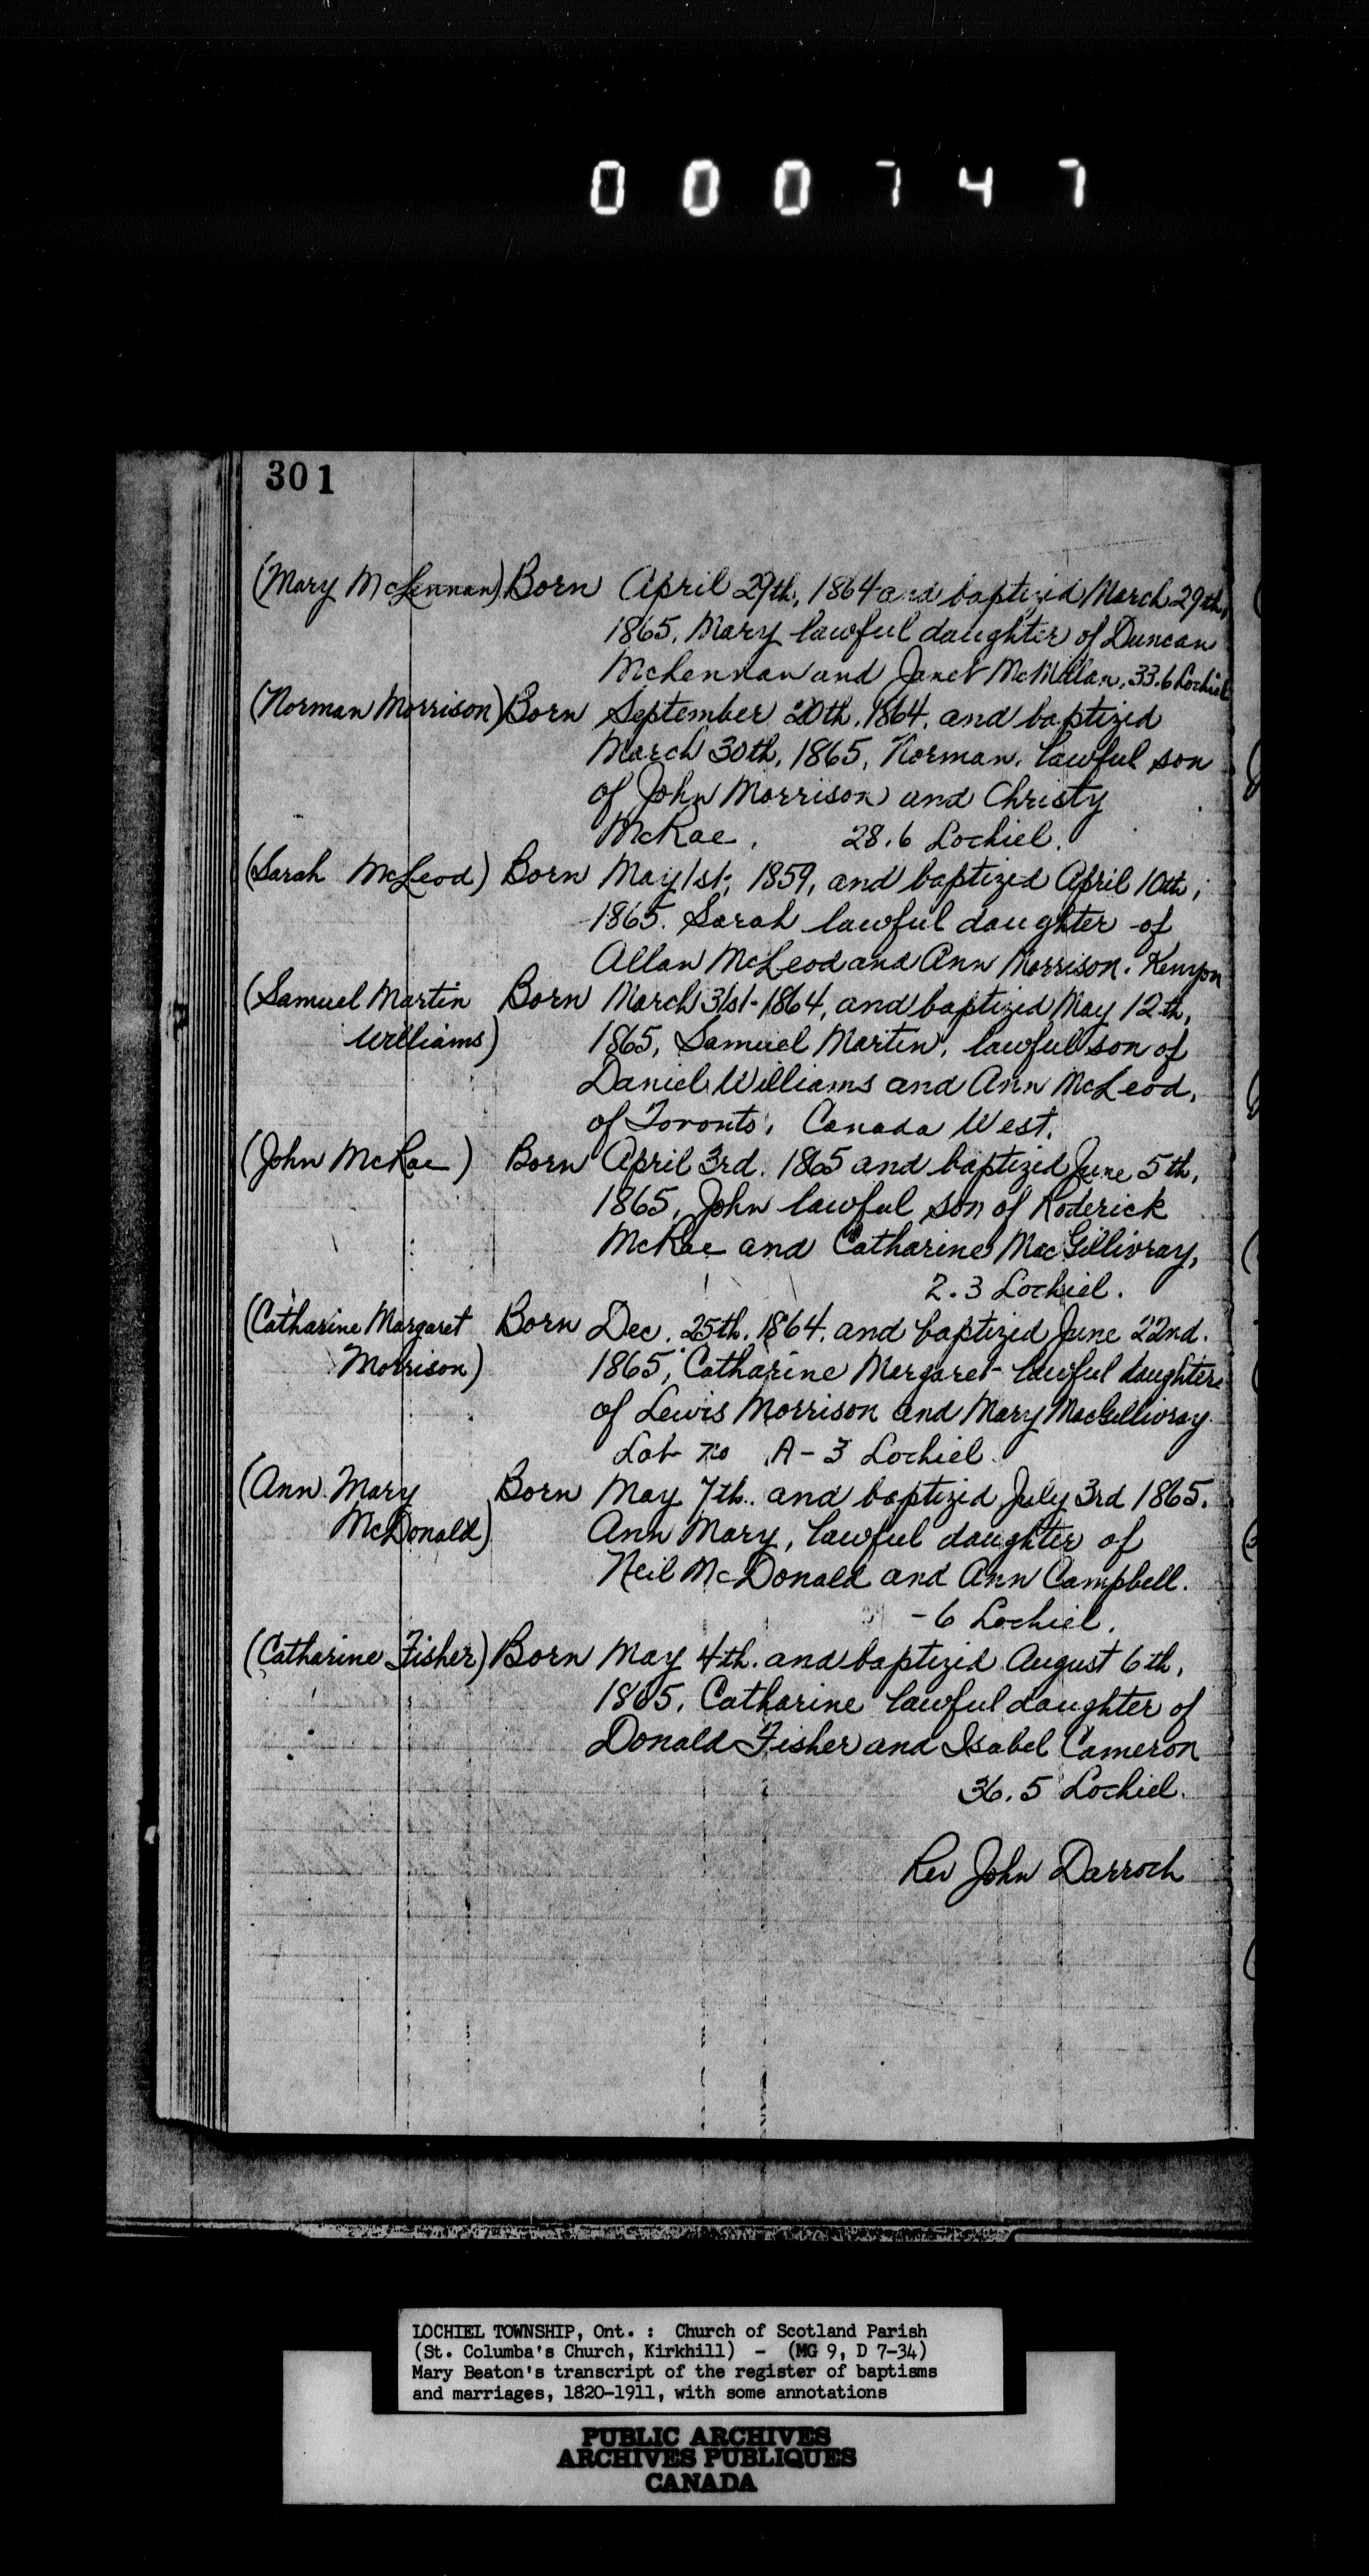 000747
301
(Mary McLennan) Born April 29th, 1864 and baptized March 29th,
1865. Mary lawful daughter of Duncan
McLennan and Janet McMillan. 33.6 Lochiel
(Norman Morrison) Born September 20th, 1864, and baptized
March 30th, 1865, Norman, lawful son
of John Morrison and Christy
McRae, 28.6 Lochiel.
(Sarah McLeod) Born May 1st, 1859, and baptized April 10th,
1865. Sarah lawful daughter of
Allan McLeod and Ann Morrison. Kenyon
(Samuel Martin Born March 31st 1864, and baptized May 12th,
Williams) 1865, Samuel Martin, lawful son of
Daniel Williams and Ann McLeod,
of Toronto, Canada West.
(John McRae) Born April 3rd. 1865 and baptized June 5th,
1865, John lawful son of Roderick
McRae and Catharine MacGillivray,
2.3 Lochiel.
(Catharine Margaret Born Dec. 25th. 1864, and baptized June 22nd.
Morrison) 1865, Catharine Margaret lawful daughter
of Lewis Morrison and Mary MacGillivray.
Lot no A-3 Lochiel.
(Ann Mary Born May 7th.. and baptized July 3rd 1865.
McDonald) Ann Mary, lawful daughter of
Neil McDonald and Ann Campbell.
-6 Lochiel.
(Catharine Fisher) Born May 4th. and baptized August 6th,
1865, Catharine lawful daughter of
Donald Fisher and Isabel Cameron
36.5 Lochiel.
Rev John Darroch
LOCHIEL TOWNSHIP, Ont. : Church of Scotland Parish
(St. Columba's Church, Kirkhill) - (MG 9, D 7-34)
Mary Beaton's transcript of the register of baptisms
and marriages, 1820-1911, with some annotations
PUBLIC ARCHIVES
ARCHIVES PUBLIQUES
CANADA